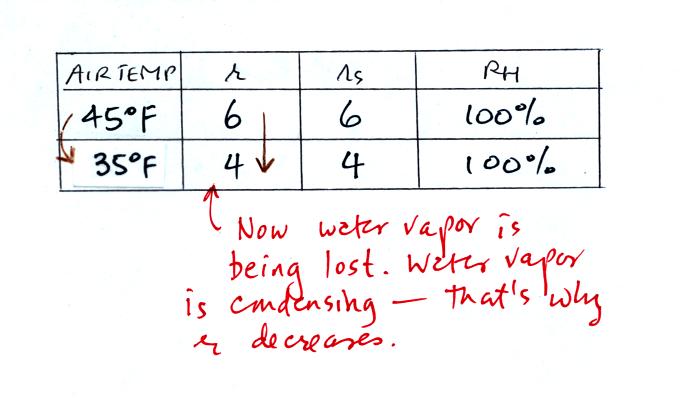 AIR TEMP r rs RH
45°F 6 6 100%
35°F 4 4 100%
Now water vapor is
being lost. Water vapor
is condensing — that's why
r decreases.